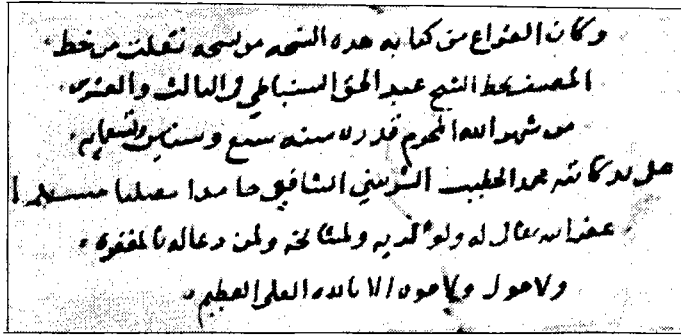 وكان الفراغ من كتابه هده النسخه من نسخه نقلت من خط
المصنف بخط الشيخ عبد الحق السنباطي في الثالث والعشرين
من شهر الله المحرم قدره سنه سبع وستين وتسعمايه
على يد كاتبه محمد الخطيب الشربيني الشافعي حامدا مصليا مسلما
غفر الله تعالى له ولوالديه ولمشايخه ولمن دعا له بالمغفره
ولا حول ولا قوه الا بالله العلي العظيم